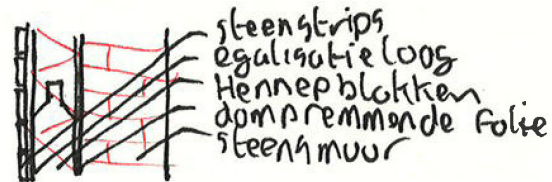 steenstrips
egalisatieloog
Hennepblokken
dampremmende folie
steensmuur